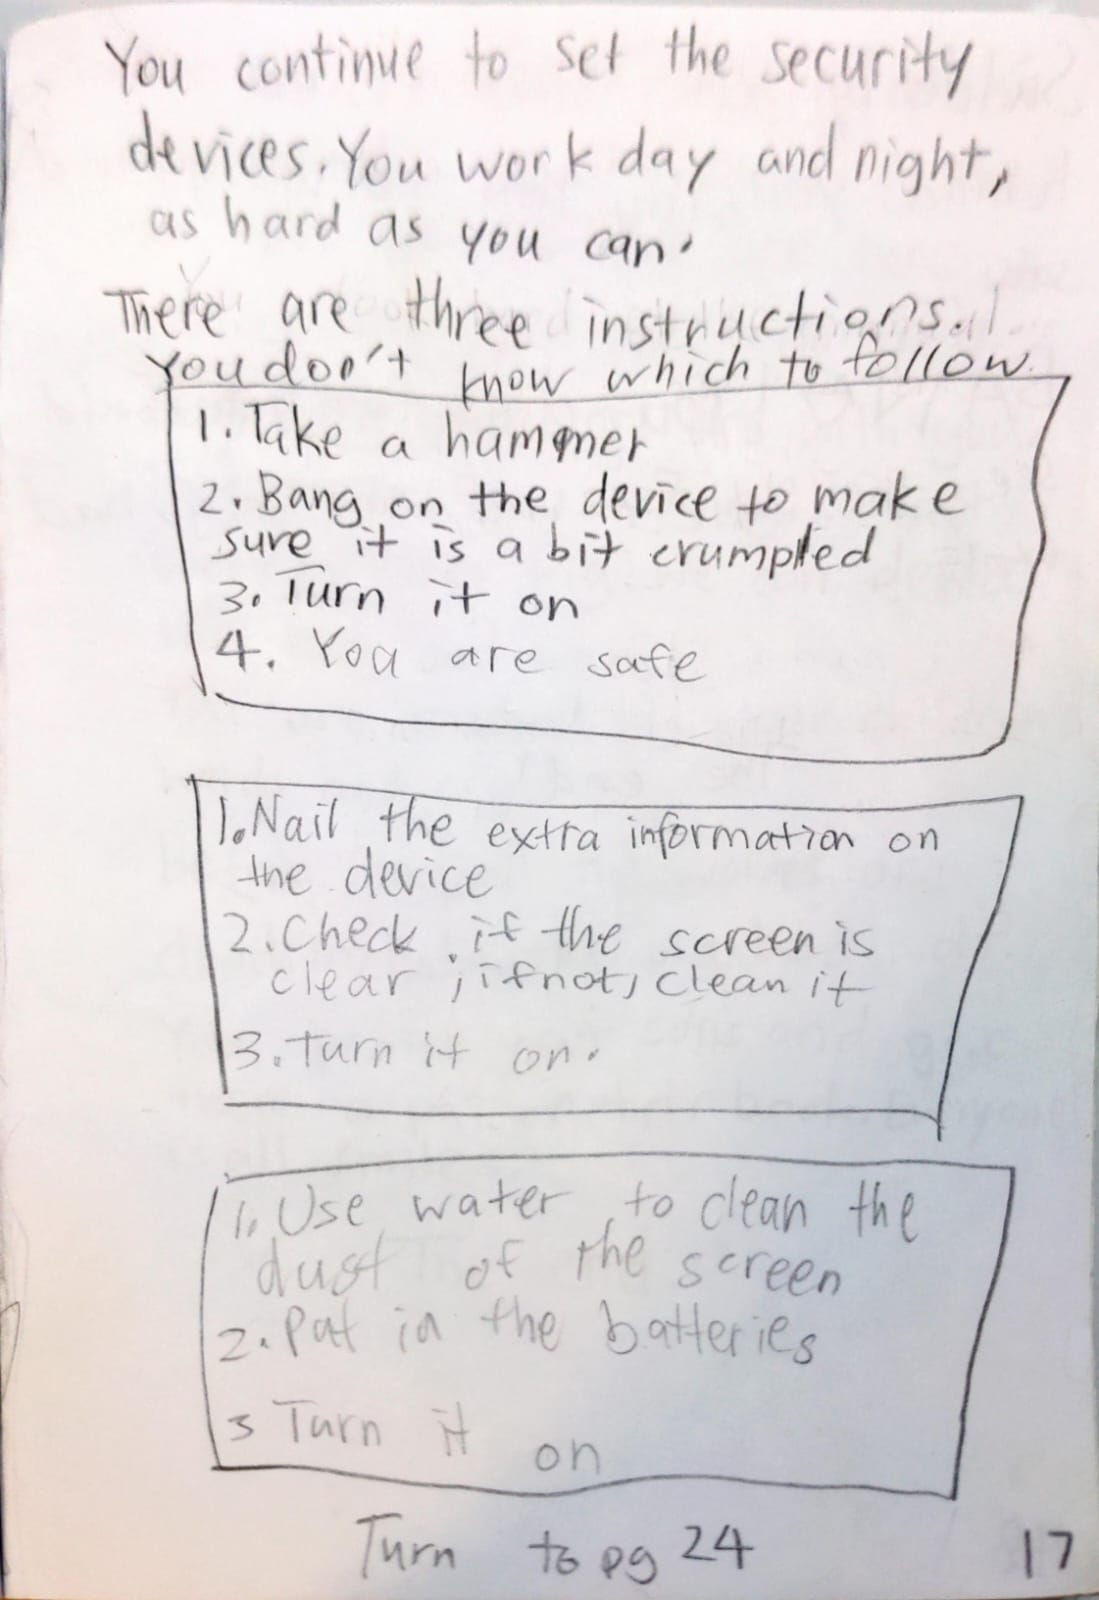 You continue to set the security
devices. You work day and night,
as hard as you can.
There are three instructions.
you don't know which to follow.
1. Take a hammer
2. Bang on the device to make
sure it is a bit crumpled
3. Turn it on
4. You are safe
1. Nail the extra information on
the device
2. Check if the screen is
clear ; if not, clean it
3. Turn it on.
1. Use water to clean the
dust of the screen
2. Put in the batteries
3 Turn it on
Turn to pg 24
17